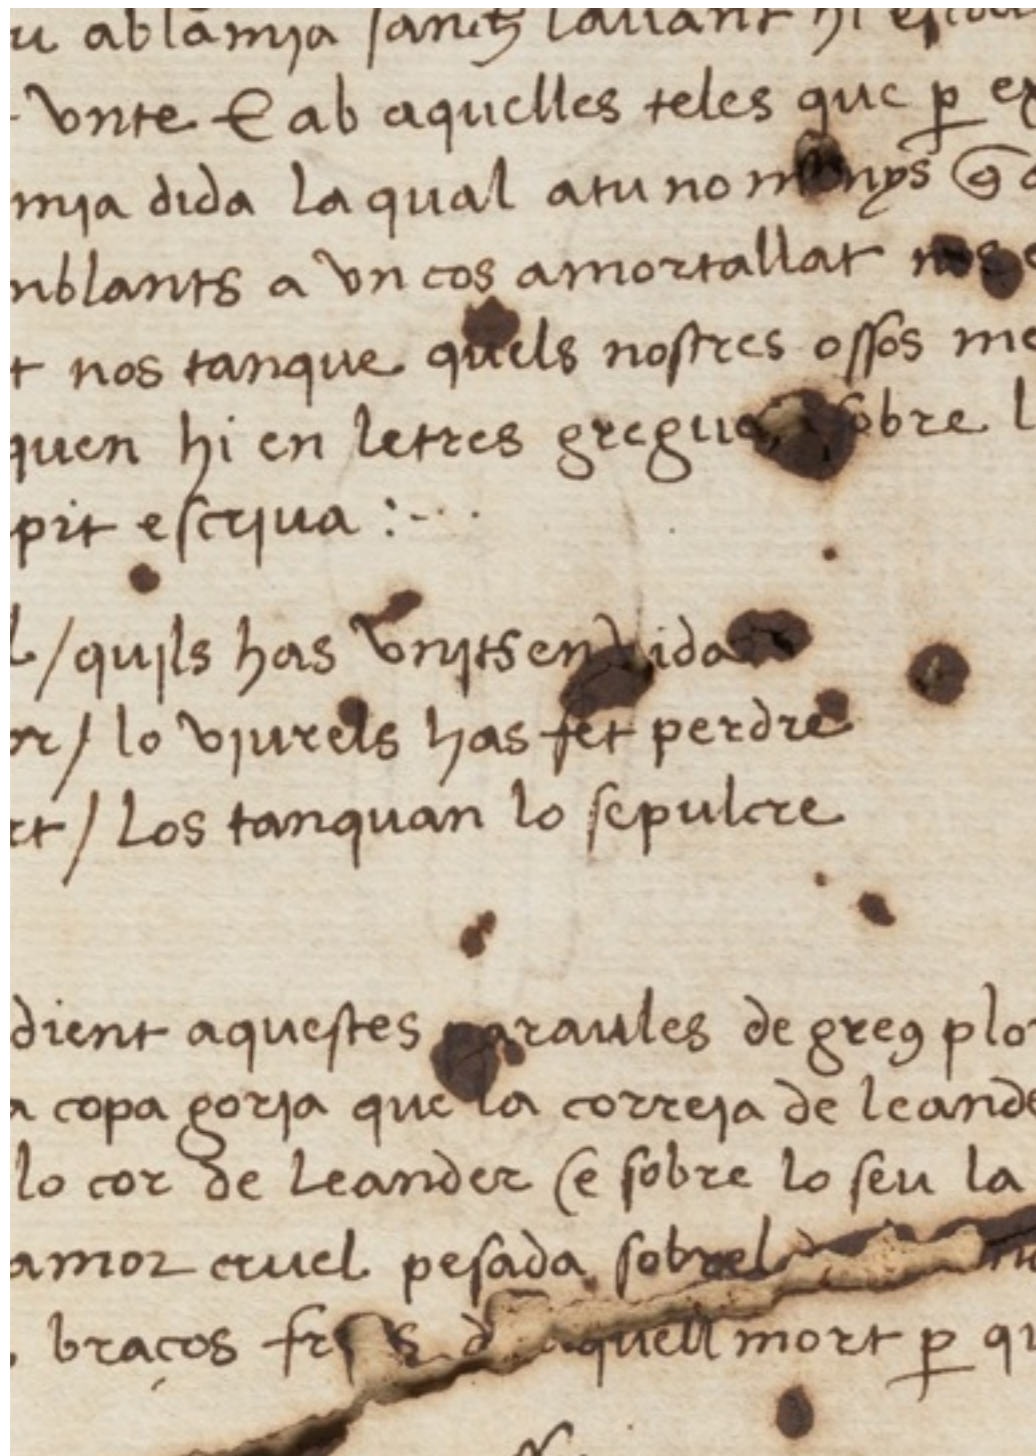 u ablamja sanch lauant hi escou
vnte E ab aquelles teles que p ex
mja dida la qual atu no menys
nblants a vn cos amortallat nos
t nos tanque quels nostres ossos me
quen hi en letres gregues sobre l
pit escrjua :-
/qujls has vnjts en vida
or/ lo vjurels has fet perdre
rt/ Los tanquan lo sepulcre
dient aquestes paraules de greg plo
a copa gorja que la correja de leande
lo cor de leander (e sobre lo seu la
amor cruel pesada sobrel
braços d aquell mort p qu